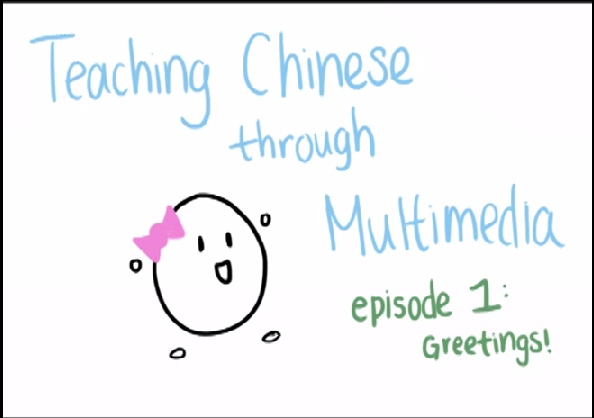 Teaching Chinese
through
Multimedia
episode 1:
Greetings!